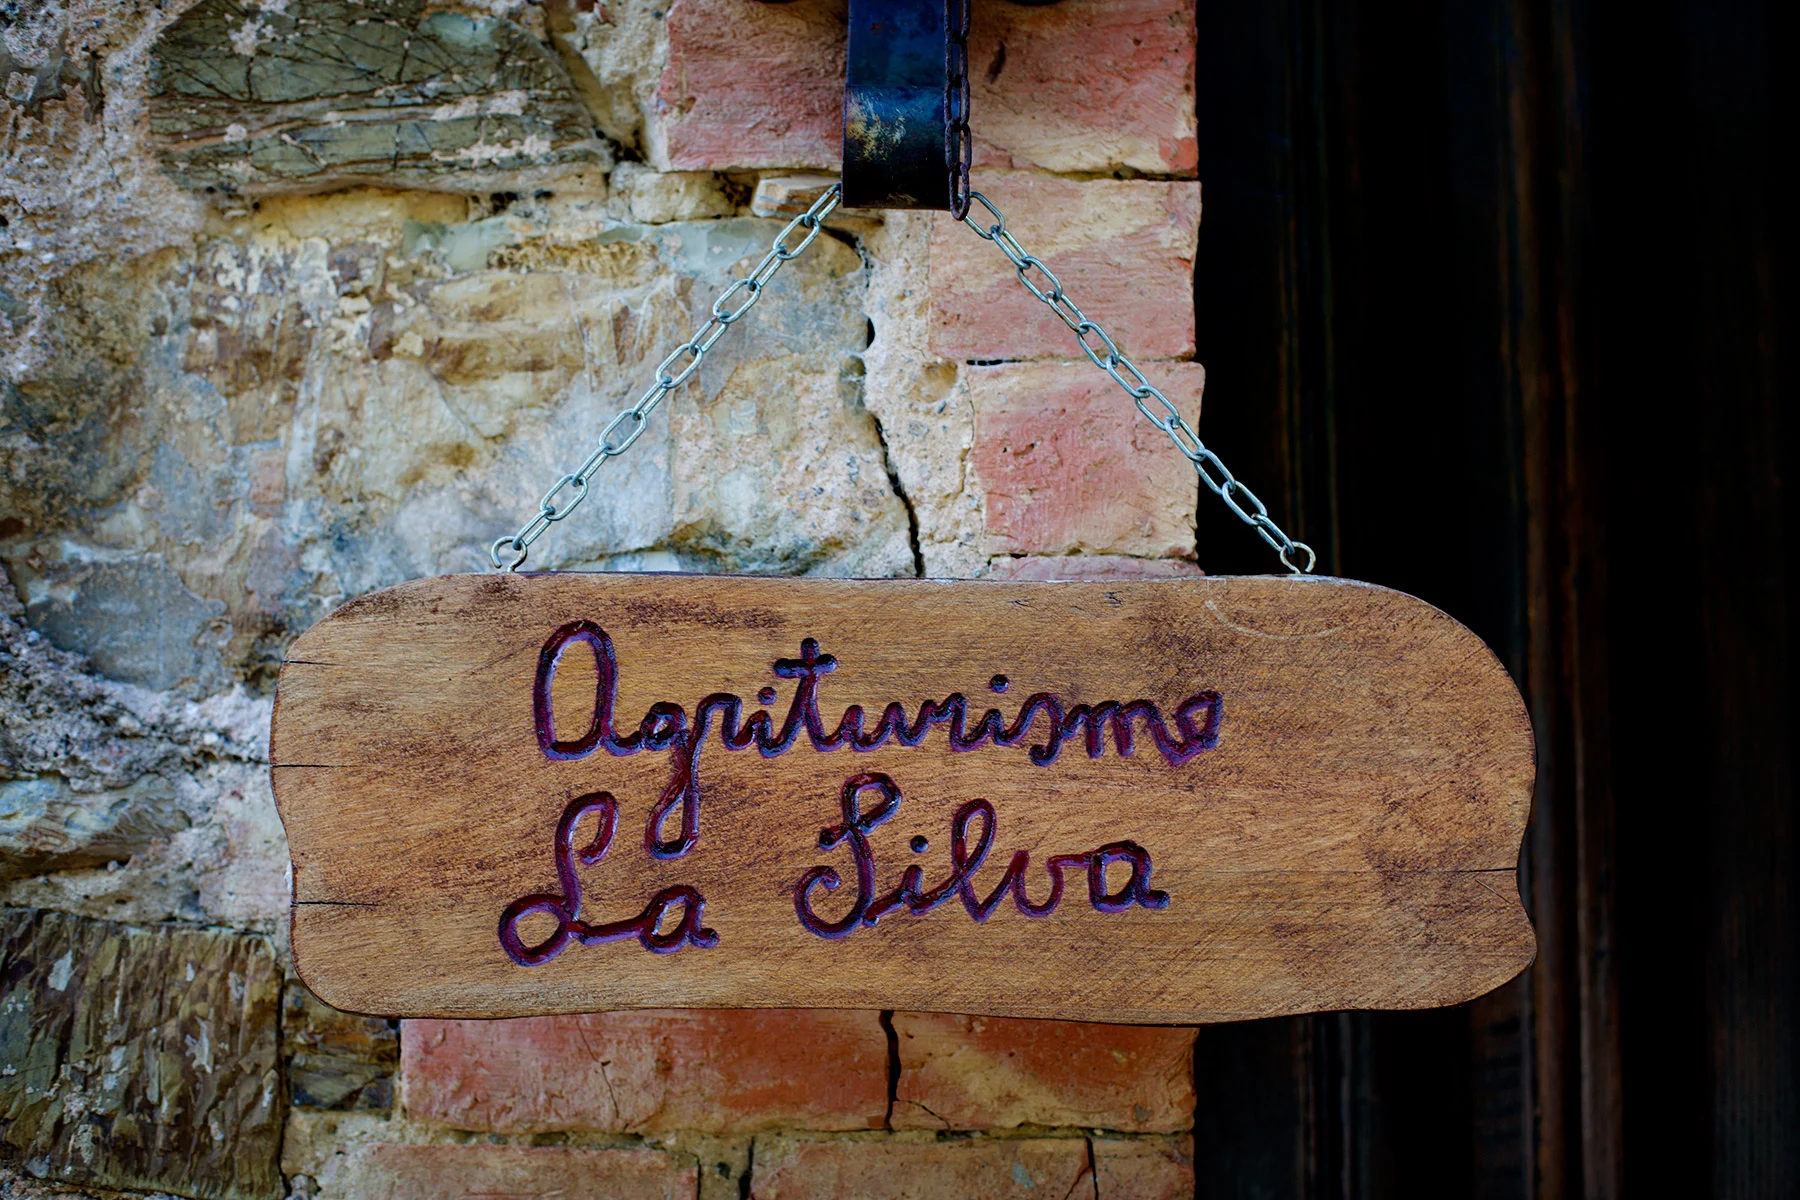 Agriturismo
La Silva